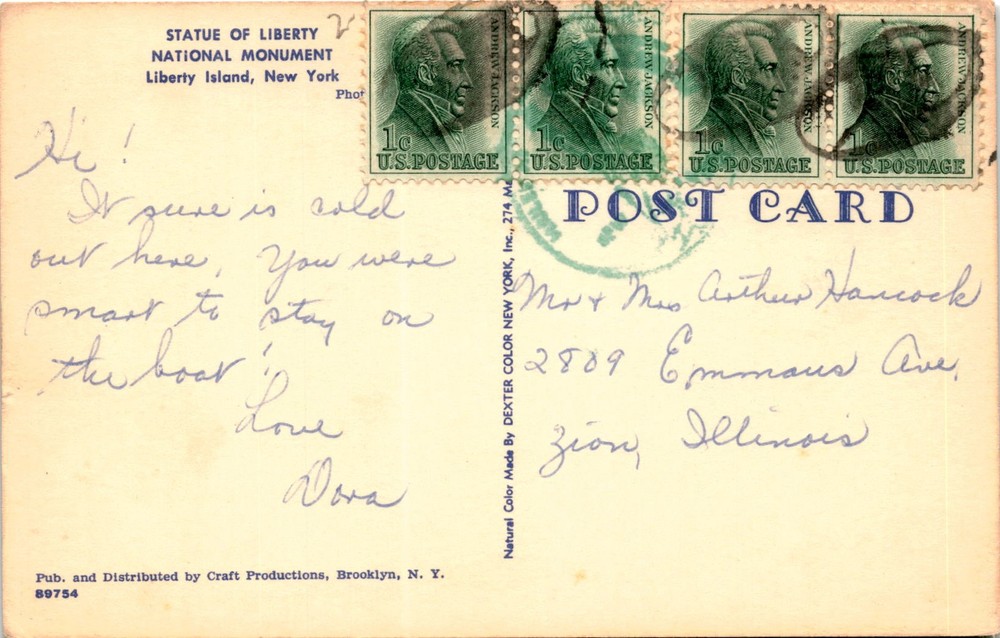 STATUE OF LIBERTY
NATIONAL MONUMENT
Liberty Island, New York
Phot
Hi!
It sure is cold
out here. You were
smart to stay on
the boat!
Love
Dora
Pub. and Distributed by Craft Productions, Brooklyn, N. Y.
89754
Natural Color Made By DEXTER COLOR NEW YORK, Inc., 274 Ma
ANDREW JACKSON
1c
U.S. POSTAGE
ANDREW JACKSON
1c
U.S. POSTAGE
ANDREW JACKSON
1c
U.S. POSTAGE
ANDREW JACKSON
1c
U.S. POSTAGE
POST CARD
Mr & Mrs Arthur Hancock
2809 Emmaus Ave.
Zion, Illinois